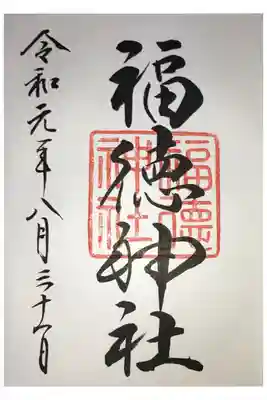 福徳神社
福德
神社
令和元年八月三十一日